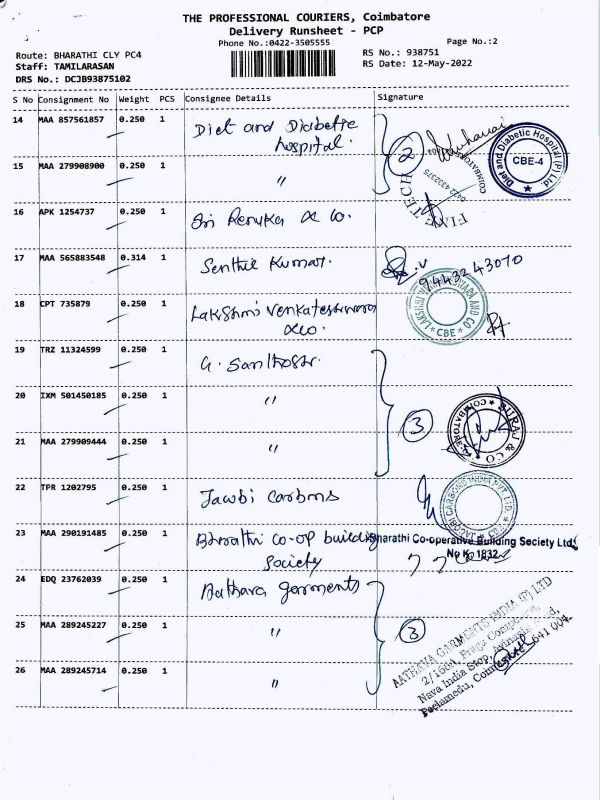 THE PROFESSIONAL COURIERS, Coimbatore
Delivery Runsheet - PCP
Phone No.:0422-3505555
Page No.:2
Route: BHARATHI CLY PC4
RS No.: 938751
Staff: TAMILARASAN
RS Date: 12-May-2022
DRS No.: DCJB93875102
S No Consignment No Weight PCS Consignee Details Signature
14 MAA 857561857 0.250 1 Diet and Diabetic
hospital.
2
Diet and Diabetic Hospital (P) Ltd.
CBE-4
15 MAA 279908900 0.250 1 "
COIMBATORE
0422 4332375
TECH
16 APK 1254737 0.250 1 Sri Renuka & Co.
17 MAA 565883548 0.314 1 Senthil Kumar.
9443243070
18 CPT 735879 0.250 1 Lakshmi Venkateshwara
& co.
CBE
19 TRZ 11324599 0.250 1 G. Santhosh.
20 IXM 501450185 0.250 1 "
3
SURAJ & CO
COIMBATORE
21 MAA 279909444 0.250 1 "
22 TPR 1202795 0.250 1 Jacobi Carbons
JACOBI CARBONS INDIA PVT. LTD.
23 MAA 290191485 0.250 1 Bharathi co-op building
society
Bharathi Co-operative Building Society Ltd.
No K. 1832
24 EDQ 23762039 0.250 1 Aathava garments
25 MAA 289245227 0.250 1 "
3
26 MAA 289245714 0.250 1 "
AATHAVA GARMENTS INDIA (P) LTD
2/166A, Praga Compound,
Nava India Stop, Avinashi Road,
Peelamedu, Coimbatore - 641 004.